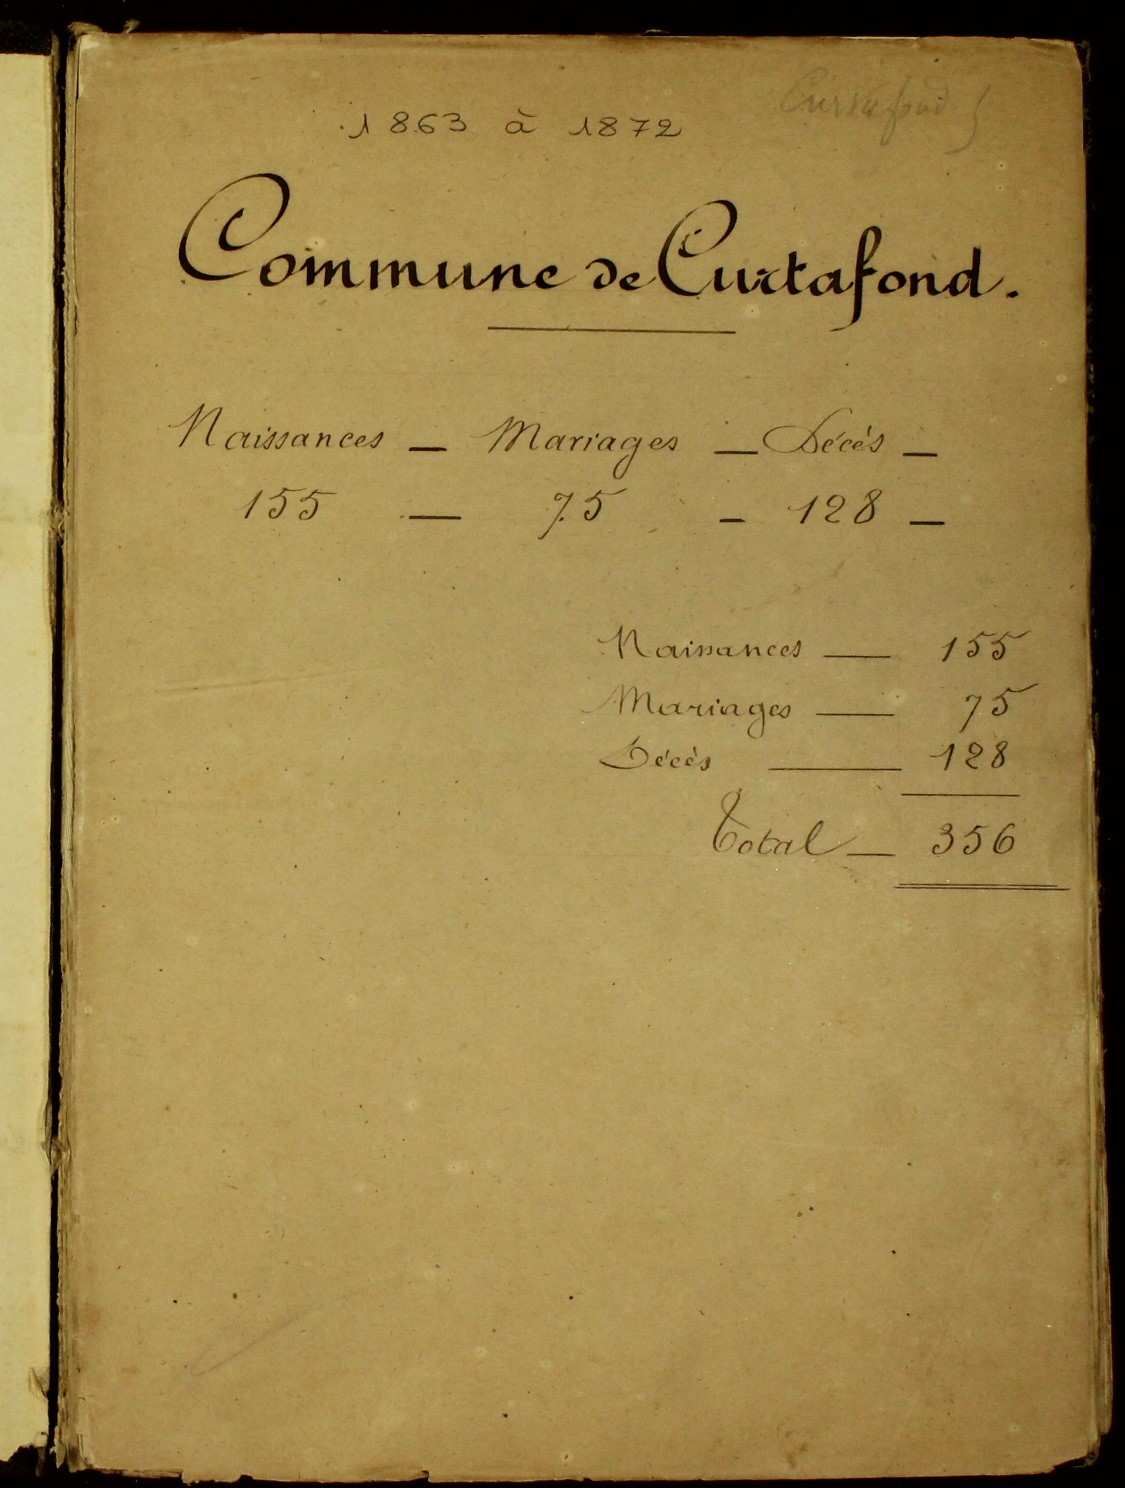 Curtafond
1863 à 1872
Commune de Curtafond.
Naissances — Mariages — Décés —
155 — 75 — 128 —
Naissances — 155
Mariages — 75
Décès — 128
Total — 356